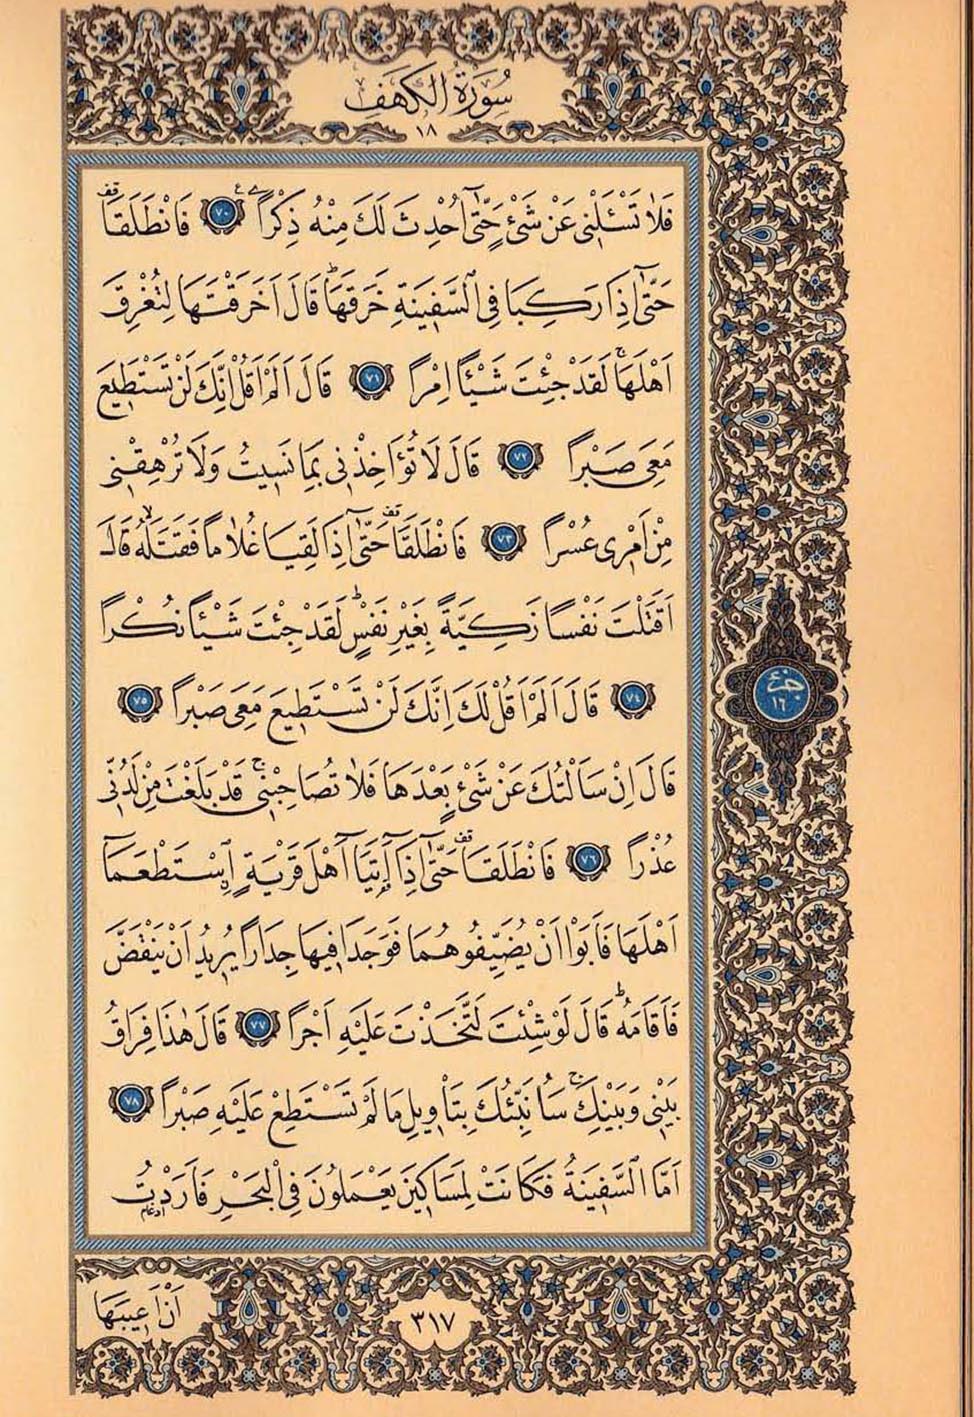 سُورَةُ الْكَهَفِ
١٨
فَلَا تَسْـَٔلْنٖى عَنْ شَىْءٍ حَتّٰٓى اُحْدِثَ لَكَ مِنْهُ ذِكْرًا ﴿٧٠﴾ فَانْطَلَقَا
حَتّٰٓى اِذَا رَكِبَا فِى السَّفٖينَةِ خَرَقَهَا قَالَ اَخَرَقْتَهَا لِتُغْرِقَ
اَهْلَهَا لَقَدْ جِئْتَ شَيْـًٔا اِمْرًا ﴿٧١﴾ قَالَ اَلَمْ اَقُلْ اِنَّكَ لَنْ تَسْتَطٖيعَ
مَعِىَ صَبْرًا ﴿٧٢﴾ قَالَ لَا تُؤَاخِذْنٖى بِمَا نَسٖيتُ وَلَا تُرْهِقْنٖى
مِنْ اَمْرٖى عُسْرًا ﴿٧٣﴾ فَانْطَلَقَا حَتّٰٓى اِذَا لَقِيَا غُلَامًا فَقَتَلَهُ قَالَ
اَقَتَلْتَ نَفْسًا زَكِيَّةً بِغَيْرِ نَفْسٍ لَقَدْ جِئْتَ شَيْـًٔا نُكْرًا
﴿٧٤﴾ قَالَ اَلَمْ اَقُلْ لَكَ اِنَّكَ لَنْ تَسْتَطٖيعَ مَعِىَ صَبْرًا ﴿٧٥﴾
قَالَ اِنْ سَاَلْتُكَ عَنْ شَىْءٍ بَعْدَهَا فَلَا تُصَاحِبْنٖى قَدْ بَلَغْتَ مِنْ لَدُنّٖى
عُذْرًا ﴿٧٦﴾ فَانْطَلَقَا حَتّٰٓى اِذَٓا اَتَيَٓا اَهْلَ قَرْيَةٍ اِسْتَطْعَمَٓا
اَهْلَهَا فَاَبَوْا اَنْ يُضَيِّفُوهُمَا فَوَجَدَا فٖيهَا جِدَارًا يُرٖيدُ اَنْ يَنْقَضَّ
فَاَقَامَهُ قَالَ لَوْ شِئْتَ لَتَّخَذْتَ عَلَيْهِ اَجْرًا ﴿٧٧﴾ قَالَ هٰذَا فِرَاقُ
بَيْنٖى وَبَيْنِكَ سَاُنَبِّئُكَ بِتَأْوٖيلِ مَا لَمْ تَسْتَطِعْ عَلَيْهِ صَبْرًا ﴿٧٨﴾
اَمَّا السَّفٖينَةُ فَكَانَتْ لِمَسَاكٖينَ يَعْمَلُونَ فِى الْبَحْرِ فَاَرَدْتُ
جزء
١٦
اَنْ اَعٖيبَهَا
٣١٧